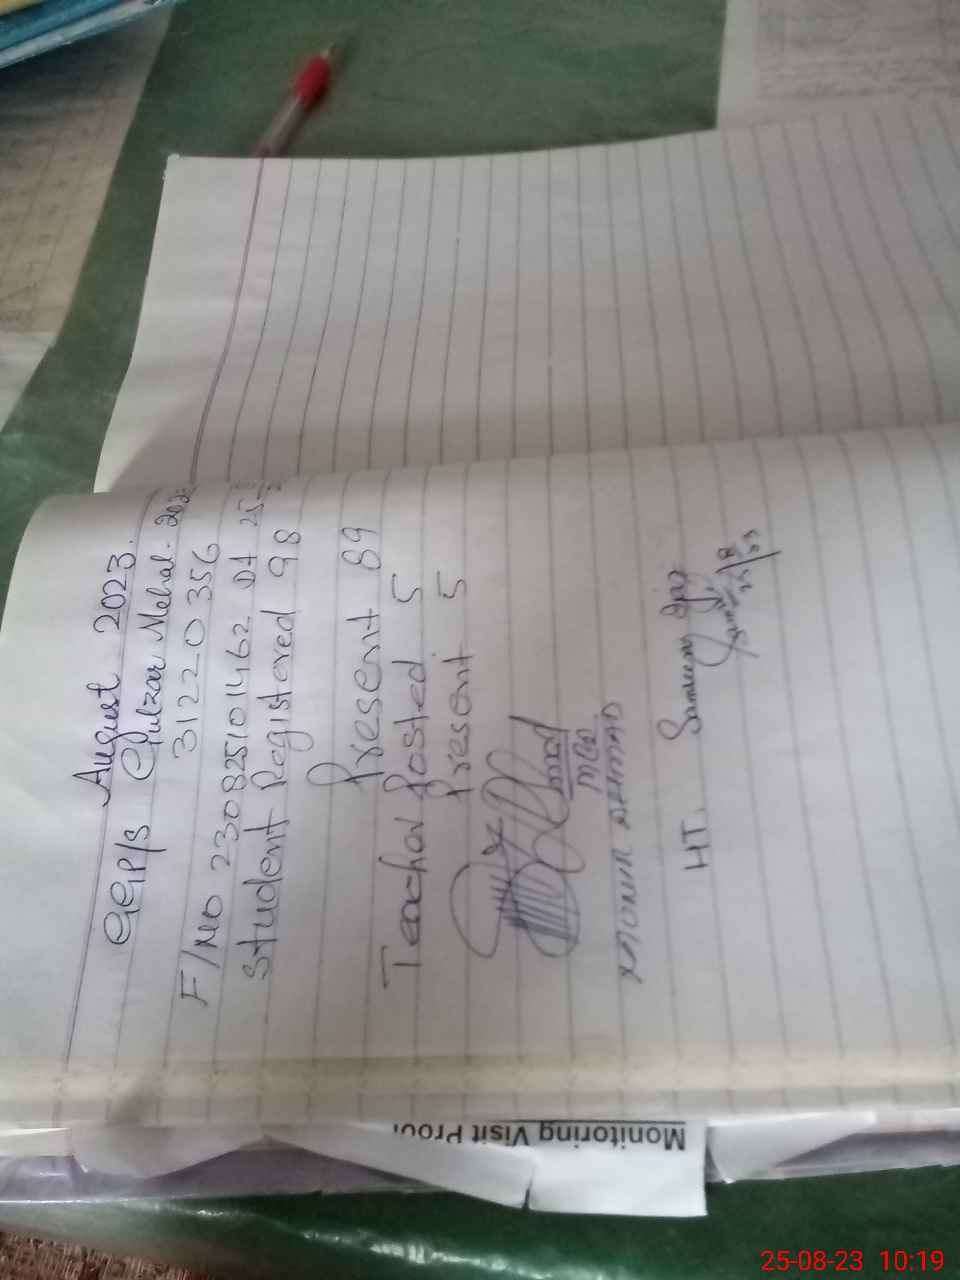 August 2023.
GGP/S Gulzar Mahal - 202
31220356
F/No 230825101462 Dt 25-
Student Registered 98
Present 89
Teacher Posted 5
Present 5
MEA
MONIR AHMAD
HT. Sameena
25/8/23
Monitoring Visit Proof
25-08-23 10:19